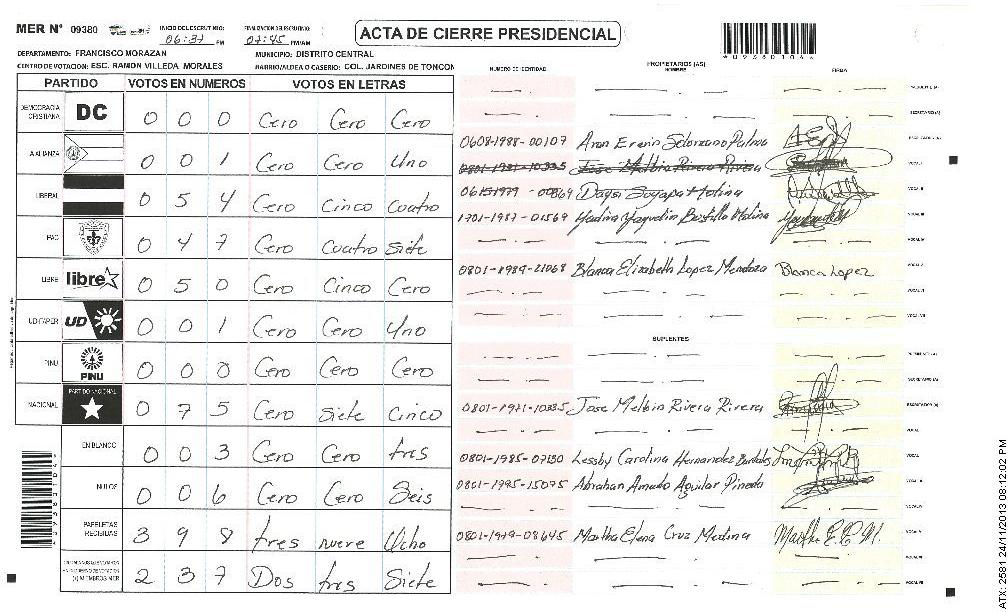 MER N° 09380 INICIO DEL ESCRUTINIO: 06:37 PM FINALIZACION DEL ESCRUTINIO: 07:45 PM/AM
ACTA DE CIERRE PRESIDENCIAL
*09380104*
DEPARTAMENTO: FRANCISCO MORAZAN MUNICIPIO: DISTRITO CENTRAL
CENTRO DE VOTACION: ESC. RAMON VILLEDA MORALES BARRIO/ALDEA O CASERIO: COL. JARDINES DE TONCON
PARTIDO VOTOS EN NUMEROS VOTOS EN LETRAS
DEMOCRACIA CRISTIANA DC 0 0 0 Cero Cero Cero
ALIANZA 0 0 1 Cero Cero Uno
LIBERAL 0 5 4 Cero Cinco Cuatro
PAC 0 4 7 Cero Cuatro Siete
LIBRE libre 0 5 0 Cero Cinco Cero
UD-FAPER UD 0 0 1 Cero Cero Uno
PINU PINU 0 0 0 Cero Cero Cero
NACIONAL PARTIDO NACIONAL 0 7 5 Cero Siete Cinco
EN BLANCO 0 0 3 Cero Cero tres
NULOS 0 0 6 Cero Cero Seis
PAPELETAS RECIBIDAS 3 9 8 tres nueve Ocho
(+) MIEMBROS MER 2 3 7 Dos tres Siete
NUMERO DE IDENTIDAD PROPIETARIOS (AS) NOMBRE FIRMA
PRESIDENTE (A)
SECRETARIO (A)
0608-1988-00107 Aron Erwin Solorzano Palma ESCRUTADOR (A)
0801-1971-10335 Jose Melbin Rivera Rivera VOCAL I
06151979-00869 Daysi Soyapa Molina VOCAL II
1701-1987-01569 Yadira Yaquelin Bustillo Molina VOCAL III
VOCAL IV
0801-1989-21068 Blanca Elizabeth Lopez Mendoza Blanca Lopez VOCAL V
VOCAL VI
VOCAL VII
SUPLENTES
PRESIDENTE (A)
SECRETARIO (A)
0801-1971-10335 Jose Melbin Rivera Rivera ESCRUTADOR (A)
VOCAL
0801-1985-07150 Lessby Carolina Hernandez Bardales VOCAL
0801-1995-15075 Abrahan Amado Aguilar Pineda VOCAL
VOCAL
0801-1979-08645 Martha Elena Cruz Medina Martha E.C.M. VOCAL V
VOCAL VI
VOCAL VII
ATX: 2581 24/11/2013 08:12:02 PM